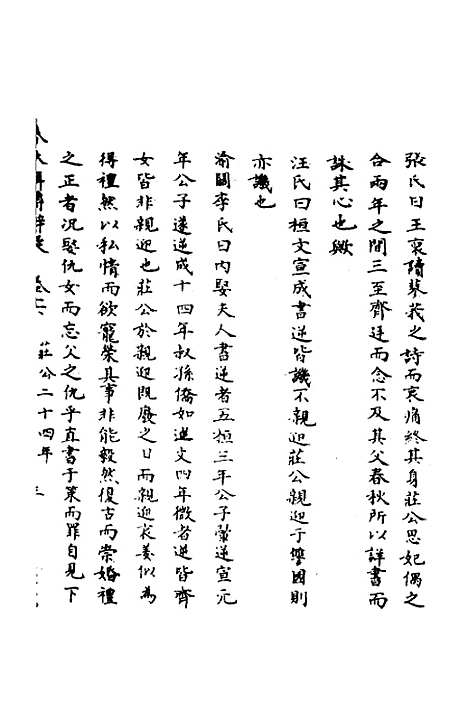 張氏曰王裒讀蓼莪之詩而哀痛終其身莊公思妃偶之
合兩年之間三至齊廷而念不及其父春秋所以詳書而
誅其心也歟
汪氏曰桓文宣成書逆皆譏不親迎莊公親迎于讐國則
亦譏也
渝關李氏曰內娶夫人書逆者五桓三年公子翬逆宣元
年公子遂逆成十四年叔孫僑如逆文四年微者逆皆齊
女皆非親迎也莊公於親迎既廢之日而親迎哀姜似為
得禮然以私情而欲寵榮其事非能毅然復古而崇婚禮
之正者况娶仇女而忘父之仇乎直書于策而罪自見下
莊公二十四年 三